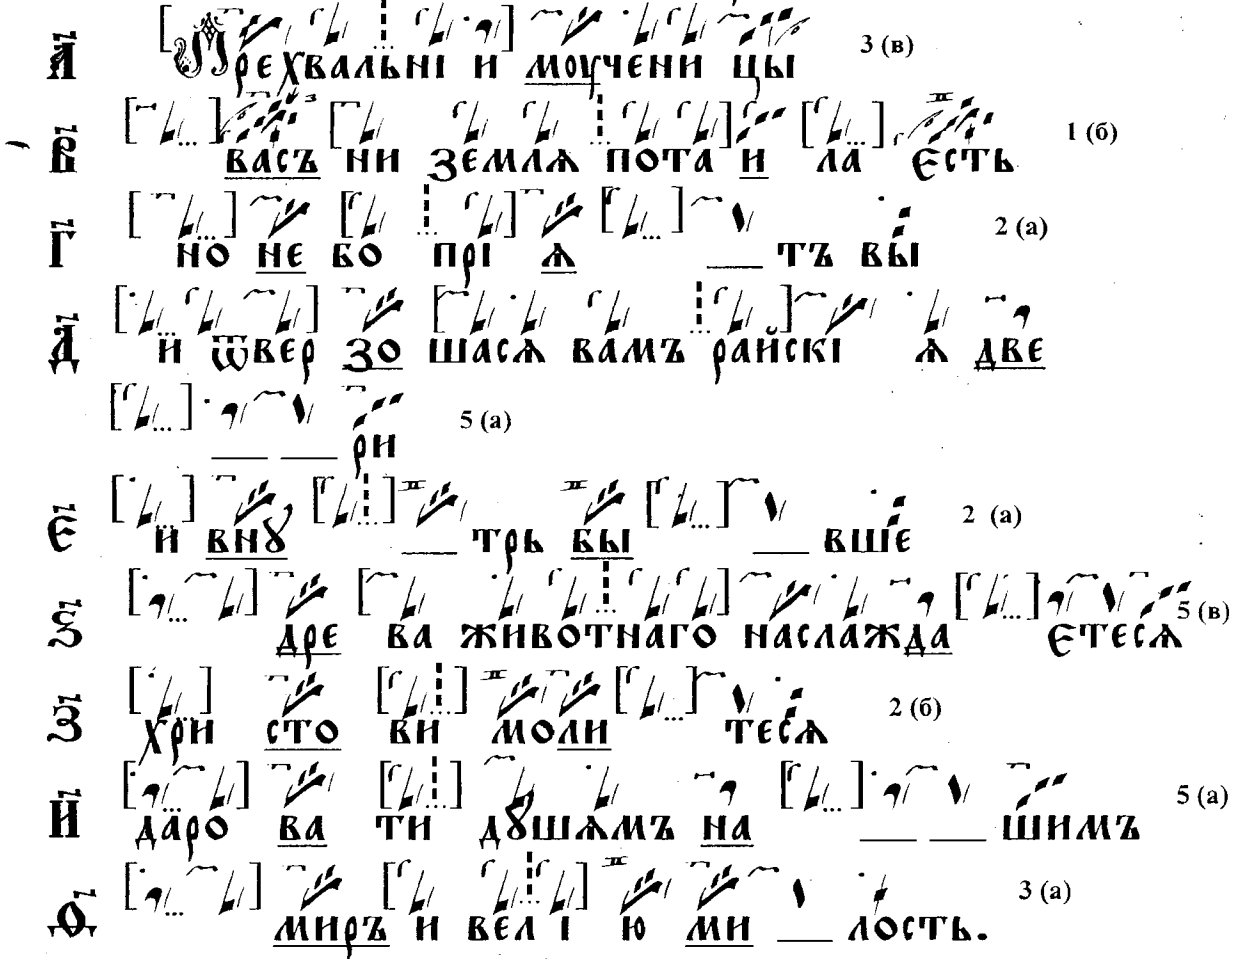 А҃ Прехвальнї и моучени цы 3 (в)
В҃ васъ ни земля пота и ла єсть 1 (б)
Г҃ но не бо прї я __ тъ вы 2 (а)
Д҃ й ѿвер зо шася вамъ райскї я две
__ __ ри 5 (а)
Є҃ й внꙋ __ трь бы __ вше 2 (а)
Ѕ҃ дре ва животнаго наслажда єтеся 5 (в)
З҃ хри сто ви моли теся 2 (б)
И҃ даро ва ти дꙋшямъ на __ __ шимъ 5 (а)
Ѳ҃ миръ и вел ї ю ми __ лость. 3 (а)